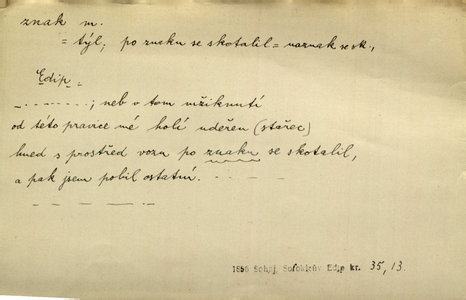 znak m.
= týl; po znaku se skotalil = naznak se sk.,
Edip.
_ . - . - . - . - . ; neb v tom mžiknutí
od této pravice mé holí udeřen (stařec)
hned s prostřed vozu po znaku se skotalil,
a pak jsem pobil ostatní. - . - . -
1856 Šohaj, Sofoklův Edip kr. 35, 13.